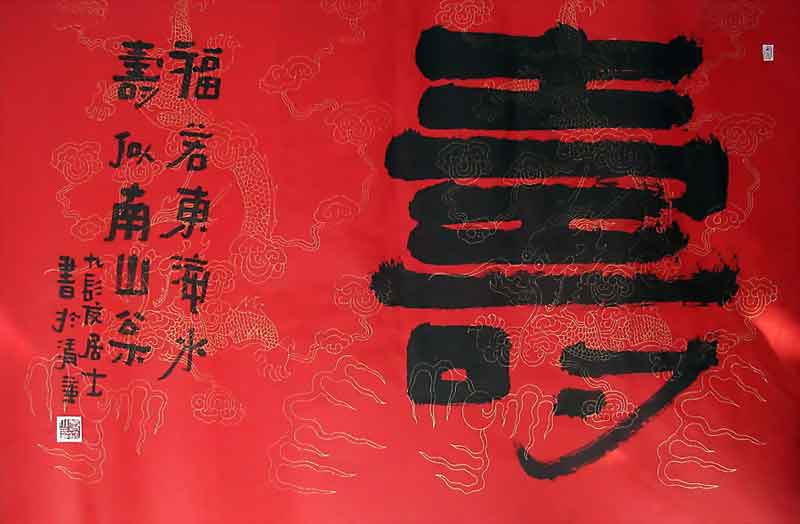 壽
福若東海水
壽似南山枀
九髮居士
書於清華